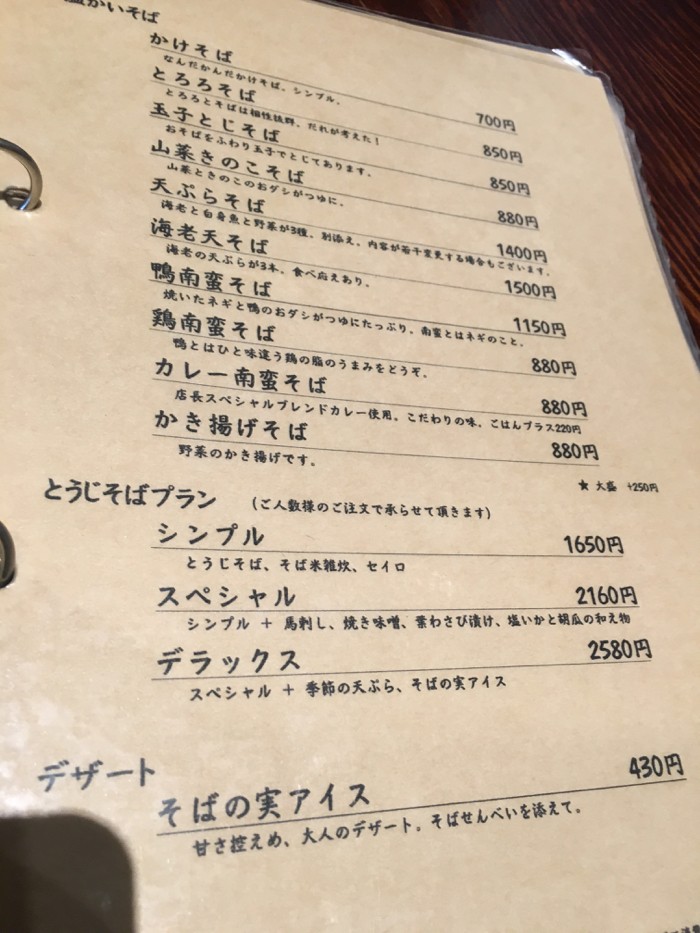 温かいそば
かけそば 700円
なんだかんだかけそば。シンプル。
とろろそば 850円
とろろとそばは相性抜群、だれが考えた！
玉子とじそば 850円
おそばをふわり玉子でとじてあります。
山菜きのこそば 880円
山菜ときのこのおダシがつゆに。
天ぷらそば 1400円
海老と白身魚と野菜が3種、別添え、内容が若干変更する場合もございます。
海老天そば 1500円
海老の天ぷらが3本、食べ応えあり。
鴨南蛮そば 1150円
焼いたネギと鴨のおダシがつゆにたっぷり、南蛮とはネギのこと。
鶏南蛮そば 880円
鴨とはひと味違う鶏の脂のうまみをどうぞ。
カレー南蛮そば 880円
店長スペシャルブレンドカレー使用。こだわりの味。ごはんプラス220円
かき揚げそば 880円
野菜のかき揚げです。
★ 大盛 +250円
とうじそばプラン （ご人数様のご注文で承らせて頂きます）
シンプル 1650円
とうじそば、そば米雑炊、セイロ
スペシャル 2160円
シンプル ＋ 馬刺し、焼き味噌、葉わさび漬け、塩いかと胡瓜の和え物
デラックス 2580円
スペシャル ＋ 季節の天ぷら、そばの実アイス
デザート
そばの実アイス 430円
甘さ控えめ、大人のデザート。そばせんべいを添えて。